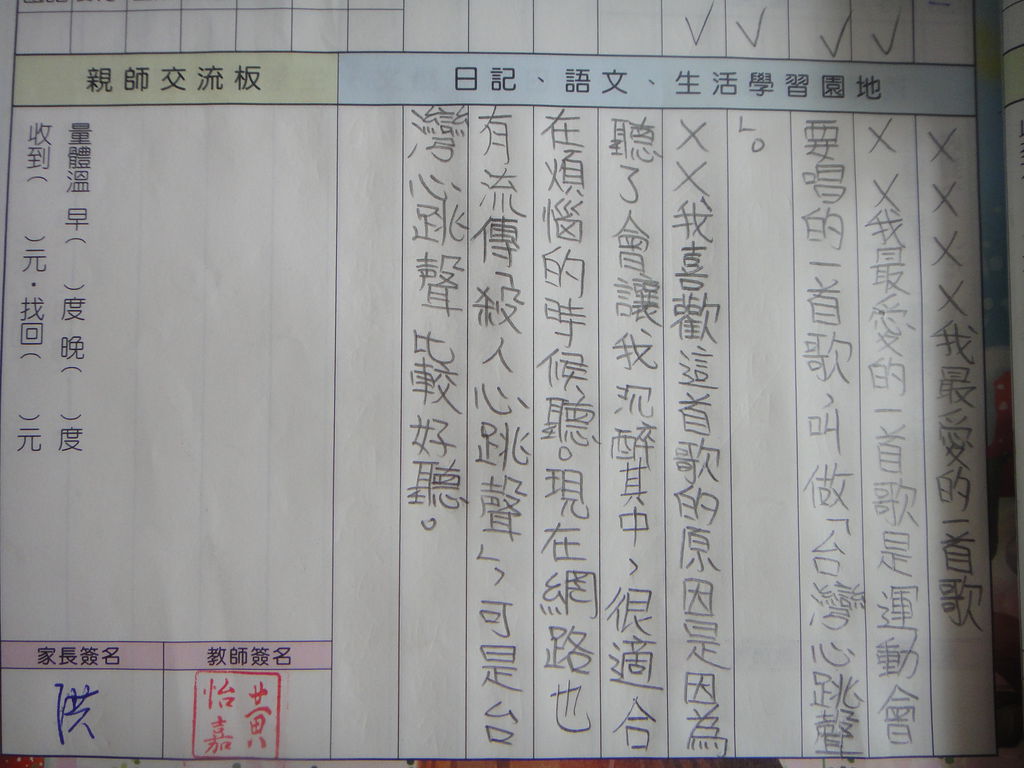 親師交流板
日記、語文、生活學習園地
××××我最愛的一首歌
××我最愛的一首歌是運動會
要唱的一首歌,叫做「台灣心跳聲
」。
××我喜歡這首歌的原因是因為
聽了會讓我沉醉其中,很適合
在煩惱的時候聽。現在網路也
有流傳「殺人心跳聲」,可是台
灣心跳聲比較好聽。
量體溫 早( )度 晚( )度
收到( )元・找回( )元
家長簽名
教師簽名
洪
黃怡嘉